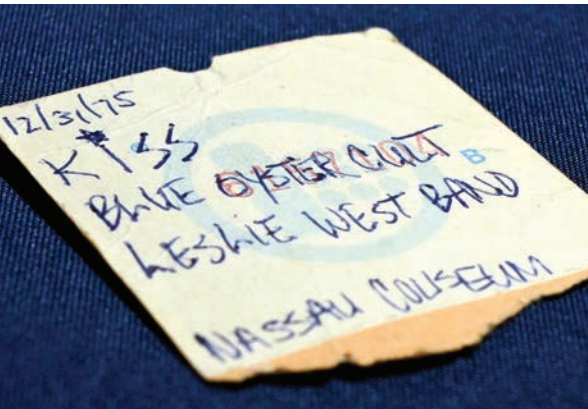 12/31/75
K*ISS
BLUE OYSTER CULT
B
LESLIE WEST BAND
NASSAU COLISEUM